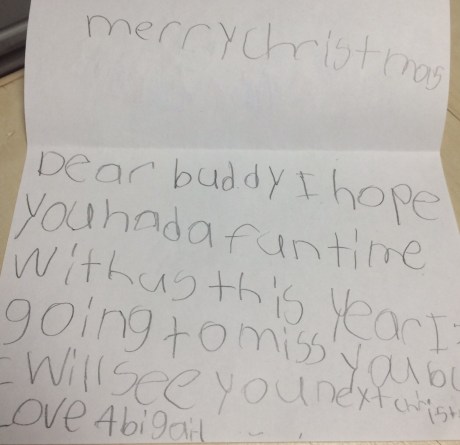 merry christmas
Dear buddy I hope
you had a fun time
with us this year I
going to miss you bu
I will see you next christ
Love Abigail